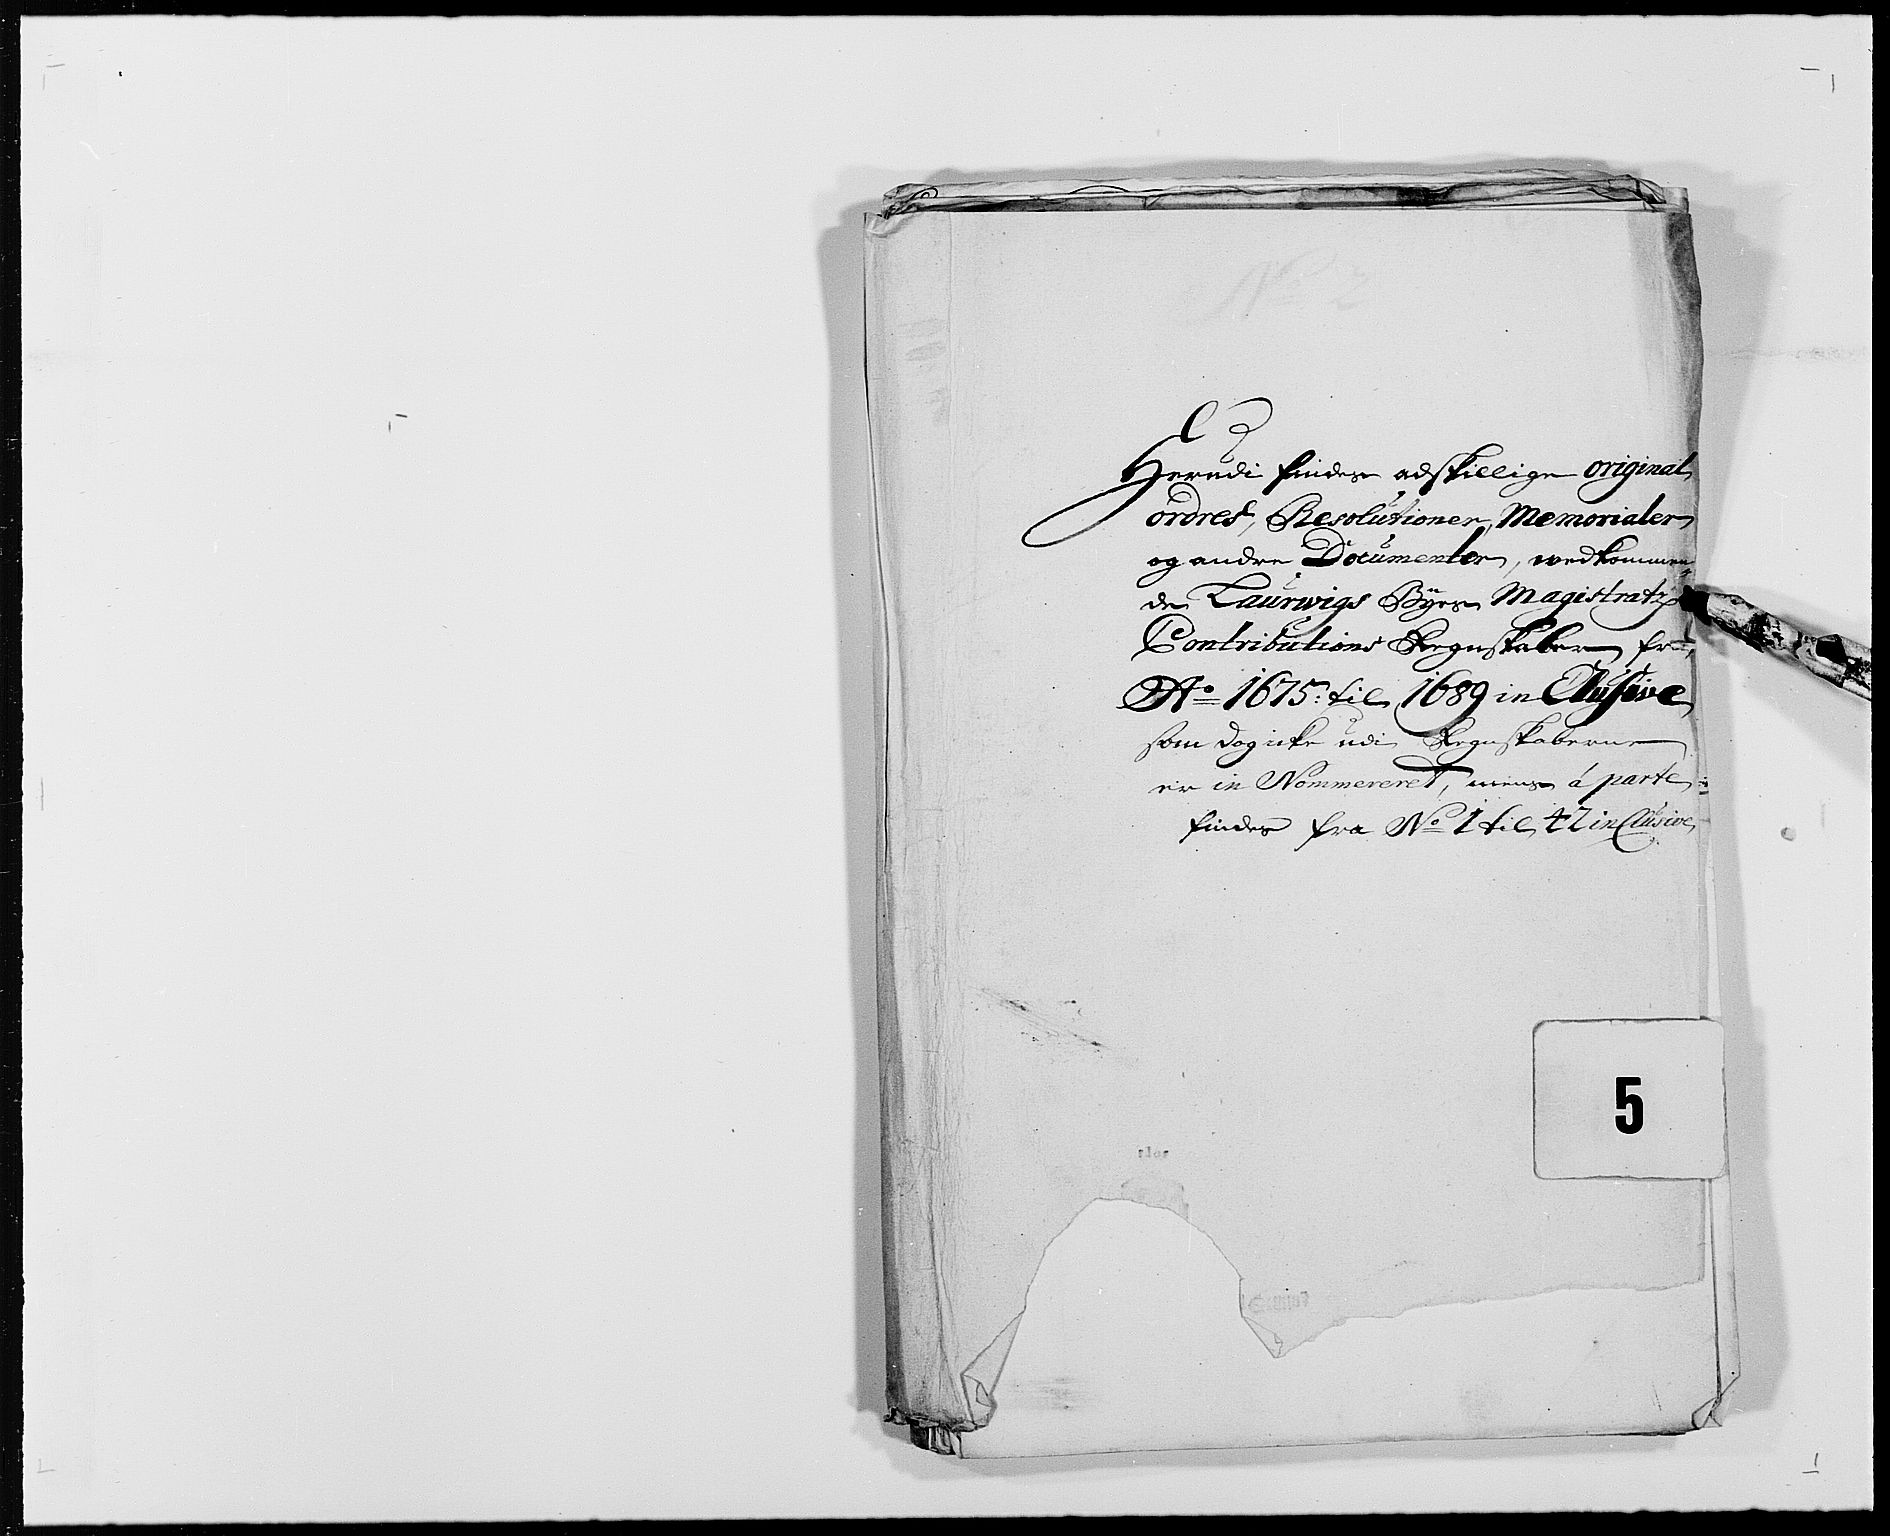 No 2
Herudi findes adskillige original
ordres, Resolutioner, Memorialer
og andre Documenter, wedkommen=
de Laurwigs Byes Magistratz
Contributions Regnskaber fra
Ao 1675: til 1689 inClusive
som dog icke udi Regnskaberne
er in Nommereret, mens á parte
findes fra No 1 til 42 inClusive
5